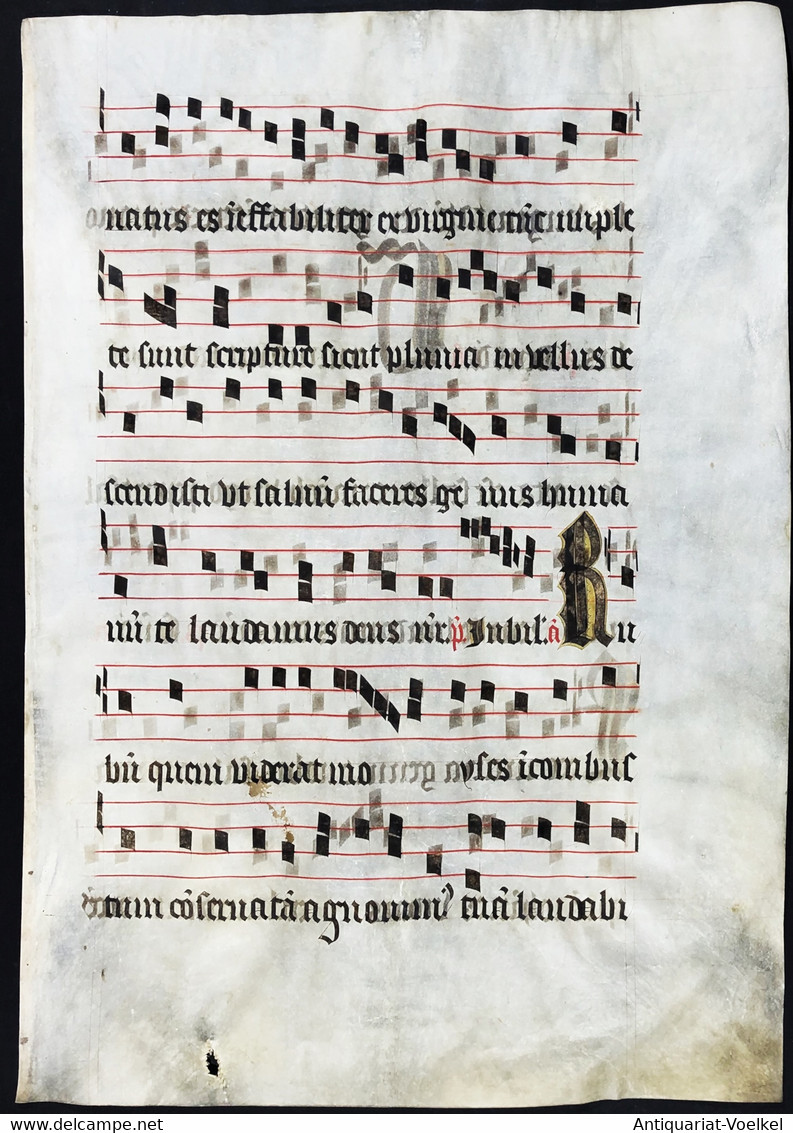 natus es īeffabiliter ex virgine tūc īmple
te sunt scripture sicut pluuia in vellus de
scendisti vt saluū faceres ge nus huma
nū te laudamus deus nr̄. p̄. Jubil'. a Ru
bū quem viderat mo yses īcombus
tum cōseruatā agnouim⁹ tuā laudabi
Antiquariat-Voelkel